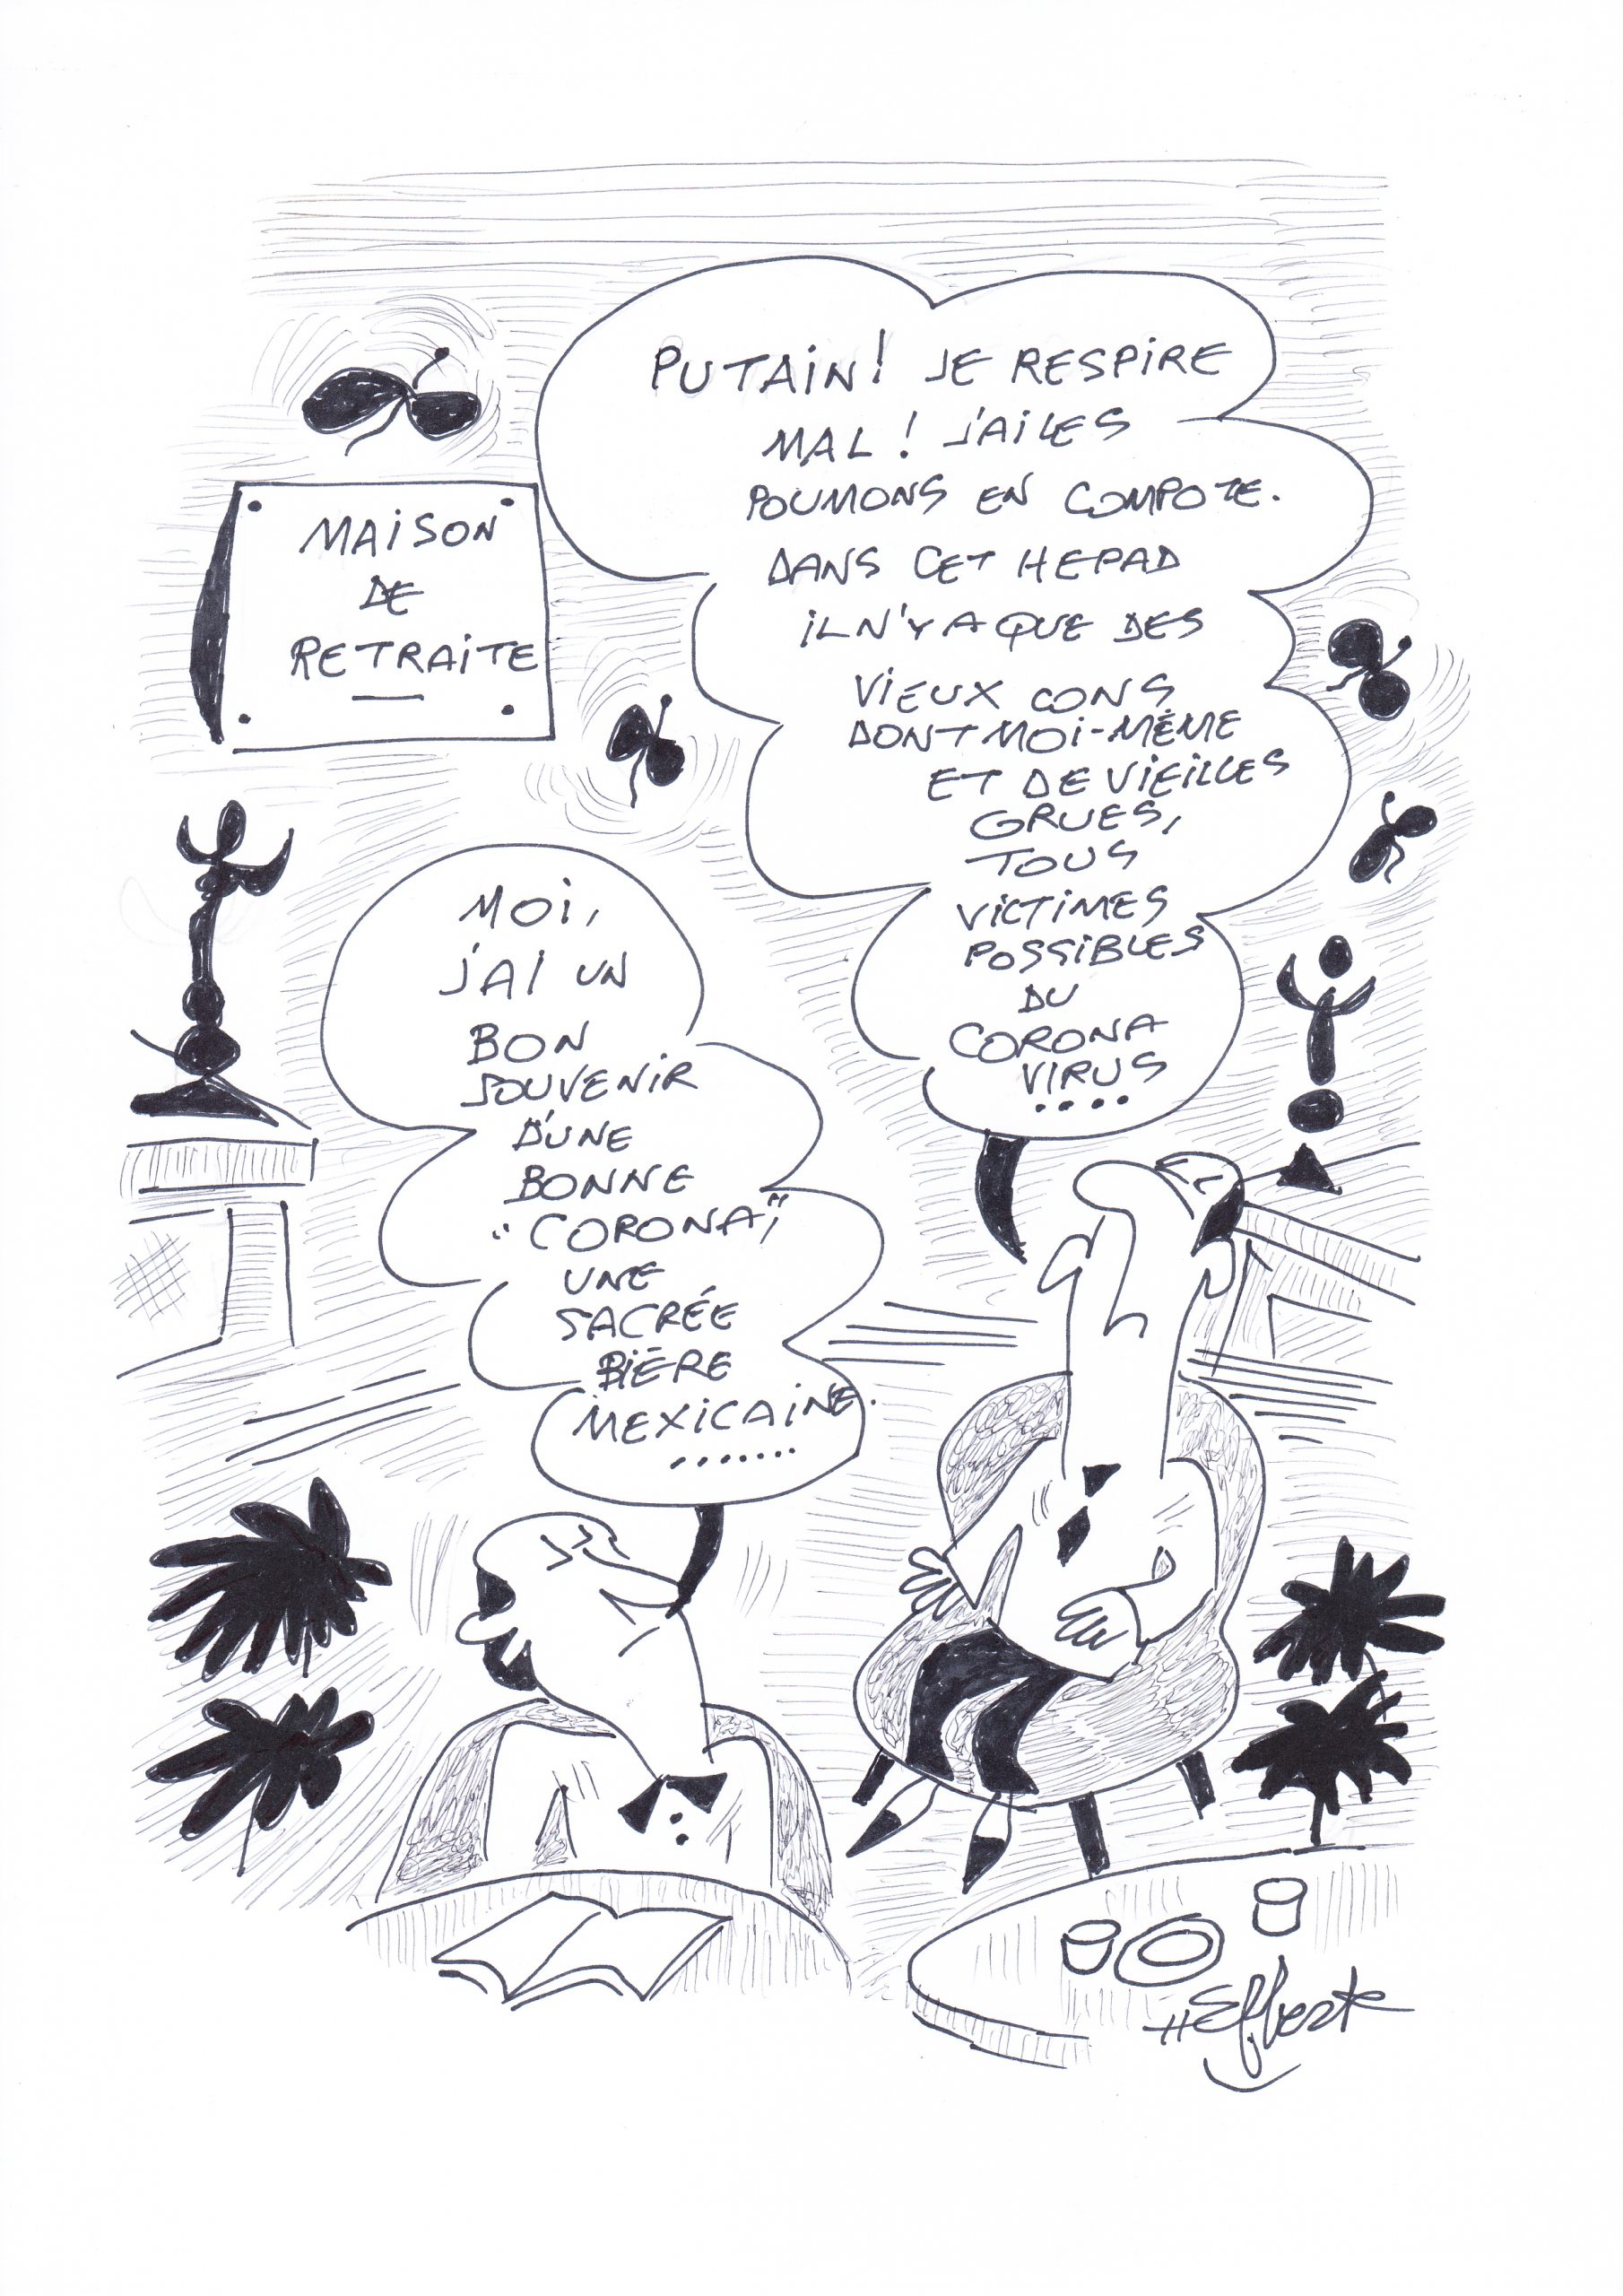 MAISON
DE
RETRAITE
PUTAIN! JE RESPIRE
MAL! J'AI LES
POUMONS EN COMPOTE.
DANS CET HEPAD
IL N'Y A QUE DES
VIEUX CONS
DONT MOI-MÊME
ET DE VIEILLES
GRUES,
TOUS
VICTIMES
POSSIBLES
DU
CORONA
VIRUS
....
MOI,
J'AI UN
BON
SOUVENIR
D'UNE
BONNE
"CORONA",
UNE
SACRÉE
BIÈRE
MEXICAINE.
.......